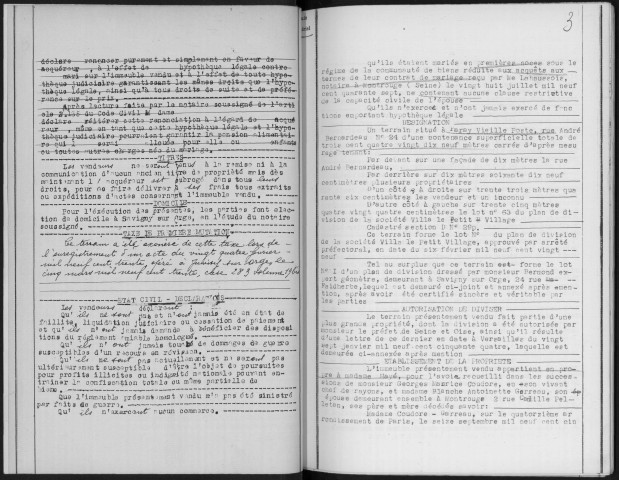 déclare renoncer purement et simplement en faveur de
acquéreur, à l'effet de hypothèque légale contre
mari sur l'immeuble vendu et à l'effet de toute hypo-
thèque judiciaire garantissant les mêmes droits que l'hypo-
thèque légale, ainsi qu'à tous droits de suite et de préfé-
rence sur le prix.
Après lecture faite par le notaire soussigné de l'arti
cle du code civil M dame
déclare réitérer cette renonciation à l'égard de acqué
reur, même en tant que cette hypothèque légale et l'hypo
thèque judiciaire pourraient garantir la pension alimentai-
re qui serait allouée pour elle ou enfants
ou toutes autres charges nées du mariage.
TITRES
Les vendeurs ne seront tenus à la remise ni à la
communication d'aucun ancien titre de propriété mais dès
maintenant l'acquéreur est subrogé dans tous leurs
droits, pour se faire délivrer à ses frais tous extraits
ou expéditions d'actes concernant l'immeuble vendu.
DOMICILE
Pour l'exécution des présentes, les parties font élec-
tion de domicile à Savigny sur Orge, en l'étude du notaire
soussigné.
TAXE DE PREMIERE MUTATION
Ce terrain a été exonéré de cette taxe lors de
l'enregistrement d'un acte du vingt quatre janvier
mil neuf cent trente, à Juvisy sur Orge, le
cinq mars mil neuf cent trente, case 283 volume
ETAT CIVIL - DECLARATIONS
Les vendeurs déclarent :
Qu'ils ne sont pas et n'ont jamais été en état de
faillite, liquidation judiciaire ou cessation de paiement
et qu'ils n'ont jamais demandé à bénéficier des disposi
tions du règlement amiable homologué.
Qu'ils n'ont jamais touché de dommages de guerre
susceptibles d'un recours en révision.
Qu'ils ne sont pas actuellement et ne seront pas
ultérieurement susceptibles d'être l'objet de poursuites
pour profits illicites ou indignité nationale pouvant en-
trainer la confiscation totale ou même partielle de
biens.
Que l'immeuble présentement vendu n'a pas été sinistré
par faits de guerre.
Qu'ils n'exercent aucun commerce.
3
qu'ils étaient mariés en premières noces sous le
régime de la communauté de biens réduite aux acquêts aux
termes de leur contrat de mariage reçu par Me
notaire à Montrouge (Seine) le vingt huit juillet mil neuf
cent quarante sept, ne contenant aucune clause restrictive
de la capacité civile de l'épouse
Qu'ils n'exercent et n'ont jamais exercé de fonc
tions emportant hypothèque légale
DESIGNATION
Un terrain situé à Paray Vieille Poste, rue André
Bernardeau N° 94 d'une contenance superficielle totale de
trois cent quatre vingt dix neuf mètres carrés d'après mesu
rage tenant:
Par devant sur une façade de dix mètres la rue
André Bernardeau,
Par derrière sur dix mètres soixante dix neuf
centimètres plusieurs propriétaires
D'un côté à droite sur trente trois mètres que
rante six centimètres les vendeur et un inconnu
D'autre côté à gauche sur trente cinq mètres
quatre vingt quatre centimètres le lot n° 63 du plan de di-
vision de la société Ville le Petit Village
Cadastré section D
Ce terrain forme le lot N° du plan de division
de la société Ville le Petit Village, approuvé par arrêté
préfectoral, en date du six février mil neuf cent vingt
neuf
Tel au surplus que ce terrain est forme le lot
N° 1 d'un plan de division dressé par monsieur Bernond ex
pert géomètre, demeurant à Savigny sur Orge, 24 rue
Faidherbe, lequel est demeuré ci-joint et annexé après men-
tion, après avoir été certifié sincère et véritable par
les parties
AUTORISATION DE DIVISER
Le terrain présentement vendu fait partie d'une
plus grande propriété, dont la division a été autorisée par
monsieur le préfet de Seine et Oise, ainsi qu'il résulte
d'une lettre de ce dernier en date à Versailles du vingt
sept janvier mil neuf cent cinquante quatre, laquelle est
demeurée ci-annexée après mention
ETABLISSEMENT DE LA PROPRIETE
L'immeuble présentement vendu appartient en pro-
pre à madame David, pour l'avoir recueilli dans les succes-
sions de monsieur Georges Maurice Coudore, en son vivant
et madame Blanche Antoinette Garreau, son
épouse demeurant ensemble à Montrouge 2 rue Camille Pel-
letan, ses père et mère décédés savoir:
Madame Coudore - Garreau, sur le quatorzième ar
rondissement de Paris, le seize septembre mil neuf cent